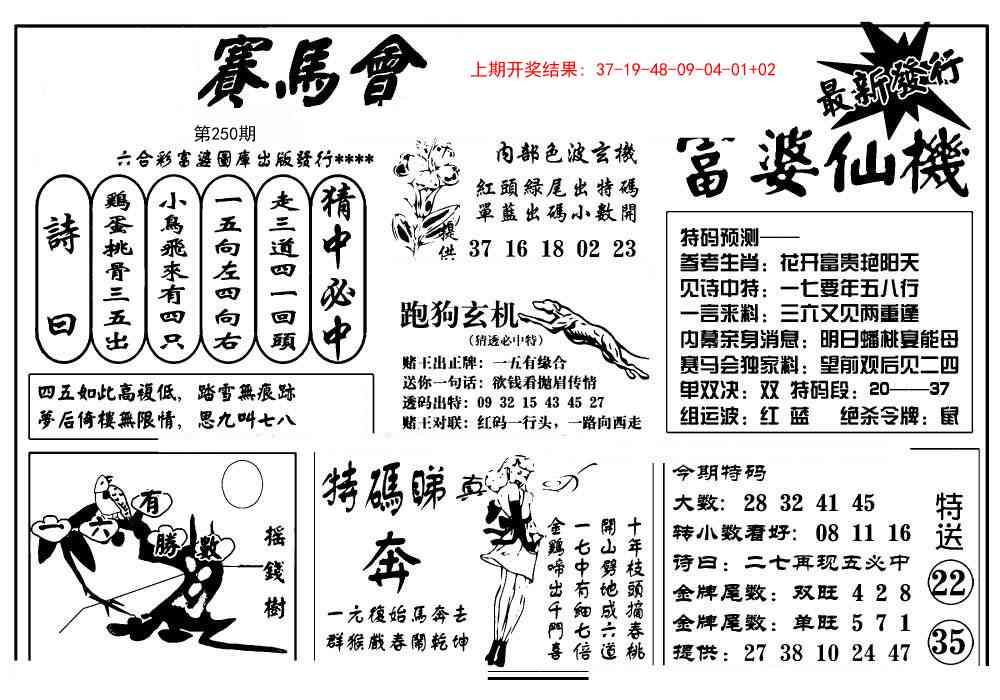 賽馬會
上期开奖结果：37-19-48-09-04-01+02
最新發行
第250期
六合彩富婆圖庫出版發行****
富婆仙機
猜中必中
走三道四一回頭
一五向左四向右
小鳥飛來有四只
鷄蛋挑骨三五出
詩曰
四五如此高複低，踏雪無痕跡
夢后倚樓無限情，思九叫七八
内部色波玄機
紅頭綠尾出特碼
單藍出碼小數開
提供
37 16 18 02 23
跑狗玄机
(猜透必中特)
赌王出正牌：一五有缘合
送你一句话：欲钱看抛眉传情
透码出特：09 32 15 43 45 27
赌王对联：红码一行头，一路向西走
特码预测——
参考生肖：花开富贵艳阳天
见诗中特：一七要年五八行
一言来料：三六又见两重逢
内幕亲身消息：明日蟠桃宴能母
赛马会独家料：望前观后见二四
单双决：双 特码段：20——37
组运波：红 蓝 绝杀令牌：鼠
一六有勝數
搖錢樹
特碼睇真
奔
一元復始馬奔去
群猴戲春鬧乾坤
十年枝頭摘春桃
開山劈地成六道
一七中有細七倍
金鷄啼出千門喜
今期特码
大数：28 32 41 45
转小数看好：08 11 16
诗曰：二七再现五必中
金牌尾数：双旺 4 2 8
金牌尾数：单旺 5 7 1
提供：27 38 10 24 47
特送
22
35